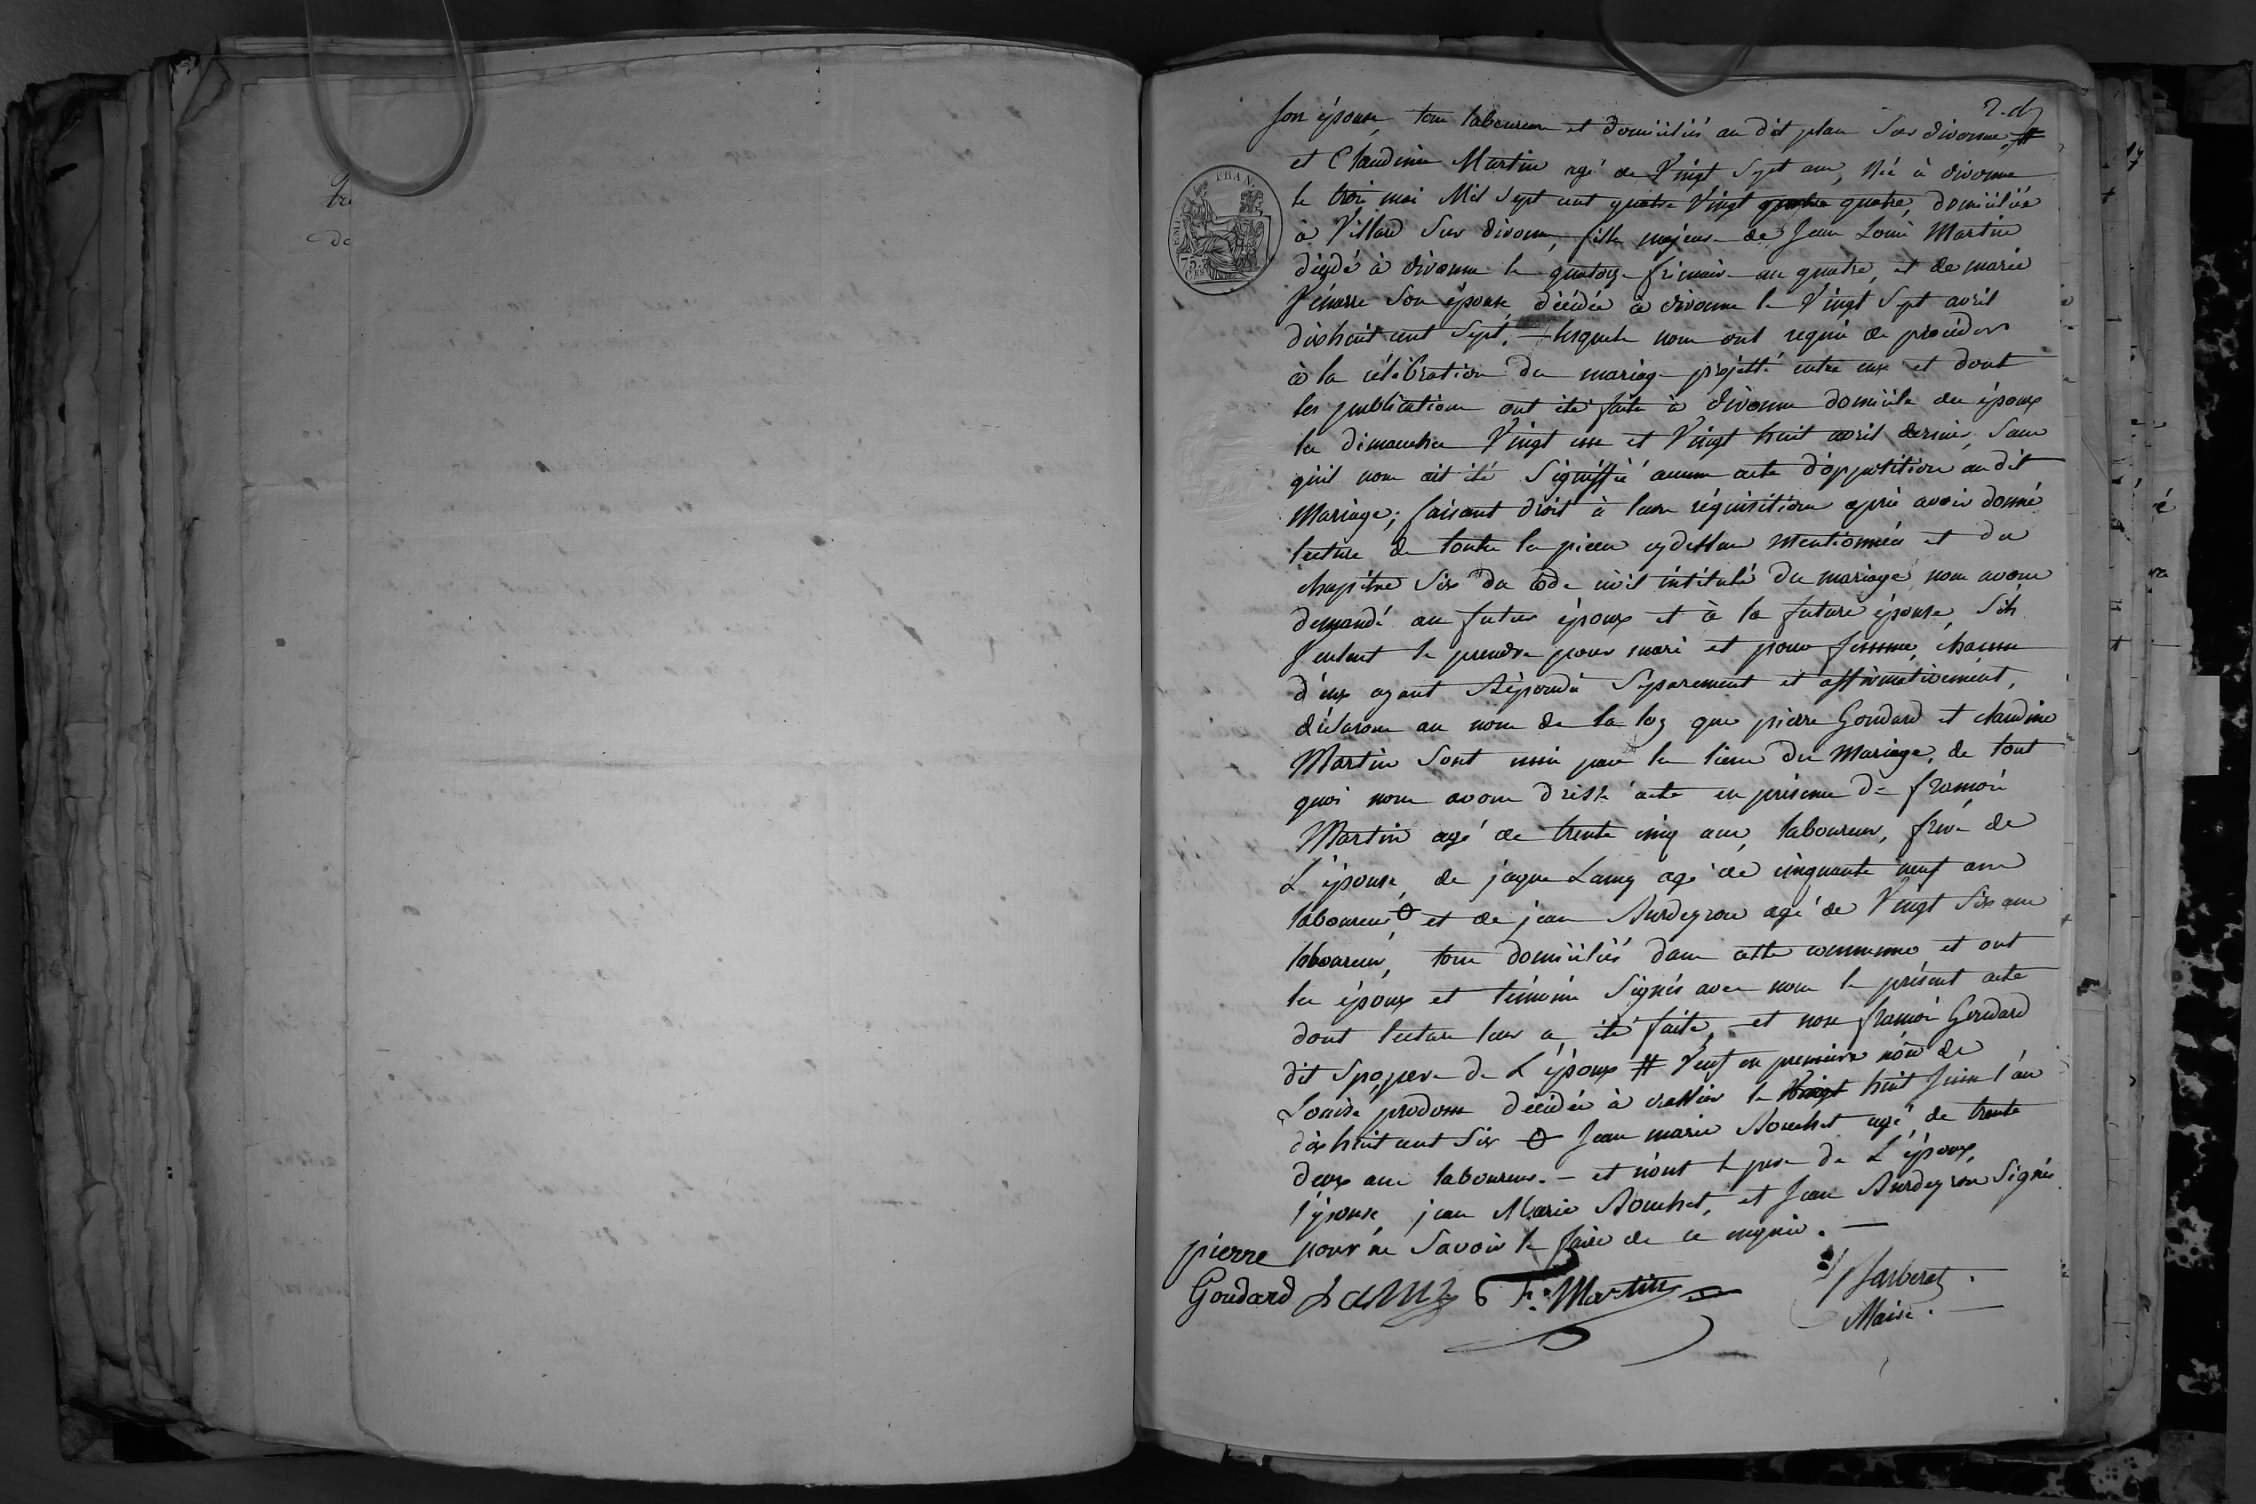 2.d
son épouse, tous laboureur et domiciliés au dit plan sur divonne, #
et Claudine Martin agé de Vingt Sept ans, Née à divonne
le trois mai Mil Sept cent quatre Vingt quatre, domiciliée
à Villard Sur divonne, fille majeure de Jean Louis Martin
décédé à divonne le quatorze frimaire an quatre, et de marie
son épouse décédée à divonne le Vingt Sept avril
dix huit cent Sept. — lesquels nous ont requis de procéder
à la célébration du mariage projetté entre eux et dont
les publications ont été faites à divonne domicile des époux
les dimanches Vingt une et Vingt huit avril dernier, Sans
quil nous ait été Signiffié aucun acte d'oppotition au dit
Mariage; faisant droit à leur réquisition après avoir donné
lecture de toutes les pièces cydessus mentionnées et du
chapitre Six du code civil intitulé du mariage, nous avons
demandé au futur époux et à la future épouse, S'ils
Veulent se prendre pour mari et pour femme, chacun
d'eux ayant Répondu Séparement et affirmativement,
déclarons au nom de la loy que pierre Goudard et claudine
Martin Sont unis par les liens du Mariage, de tout
quoi nous avons dressé acte en présence de françois
Martin agé de trente cinq ans, laboureur, frere de
L'épouse, de jaque Lamy agé de cinquante neuf ans
laboureur, Θ et de jean agé de Vingt Six ans
laboureur, tous domiciliés dans cette commune et ont
les époux et témoins Signés avec nous le présent acte
dont lecture leur a été faite, et non françois Goudard
dit père de L'époux # Veuf en première nôce de
Louise prodom décédée à crassier le Vingt huit Juin l'an
dix huit cent Six Θ Jean marie Rouchet agé de trente
deux ans laboureur. — et n'ont le père de L'époux,
l'épouse, jean Marie Rouchet, et Jean Signés
pour ne Savoir le faire de ce enquis. —
pierre
Goudard Lamy F. Martin
Maire.